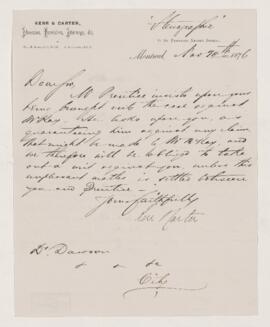 KERR & CARTER,
"Stenographic"
Montreal, Nov. 28th 1876
Dear Sir,
Mr Prentice insists upon your
being brought into the case against
McKay. He looks upon you, as
guaranteeing him against any claim
that might be made by McKay, and
we therefore will be obliged to take
out a writ against you, unless this
unpleasant matter is settled between
you and Prentice.
Yours faithfully
Kerr & Carter
Dr Dawson
City